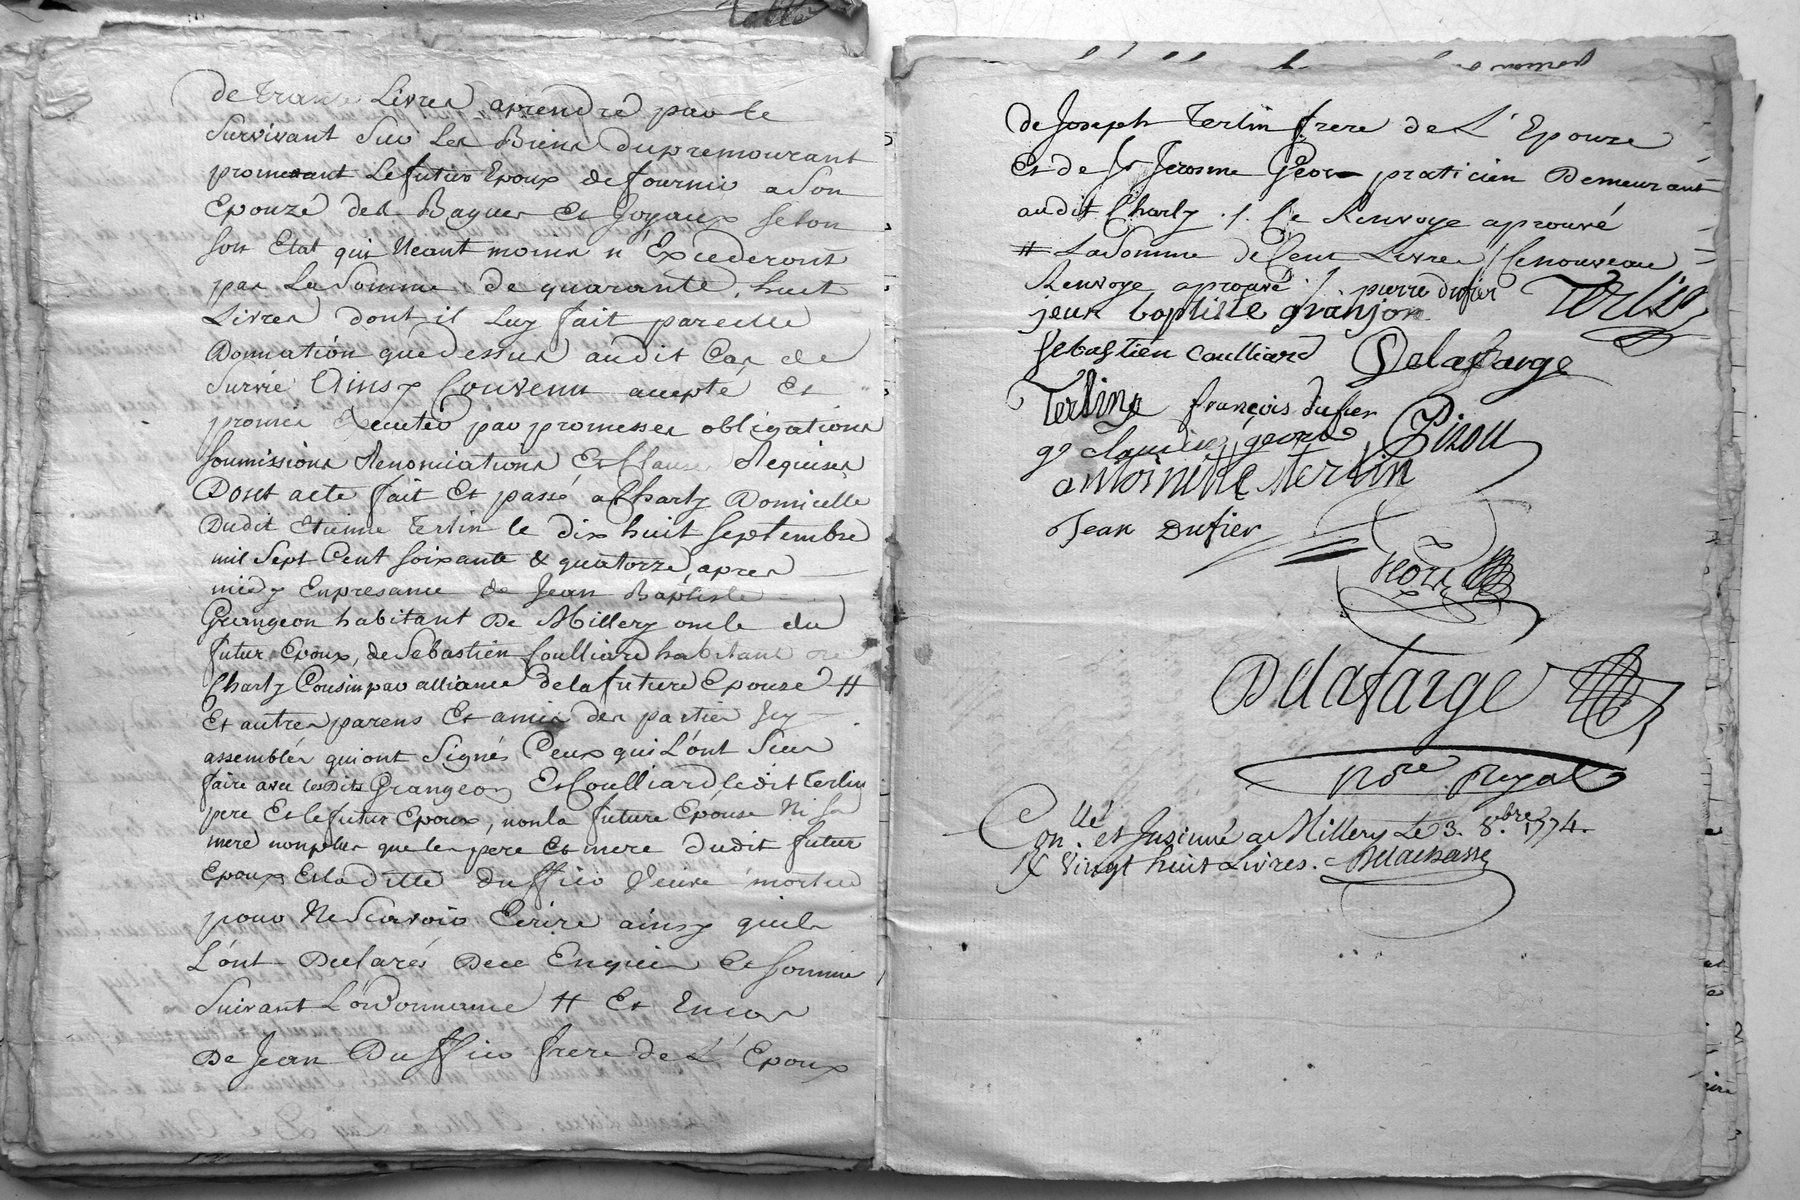 de trante Livres aprendre par le
Survivant Sur Les Biens dupremourant
promettant Lefutur Epoux de fournir a Son
Epouze des Bagues Et Joyaux Selon
Son Etat qui Neant moins n'Excederont
pas La Somme de quarante huit
Livres dont il Luy fait pareille
Donnation que dessus audit Cas de
Survie Ainsy Convenu accepté Et
promis Executer par promesses obligations
Soumissions Renonciations Et Clauses Requises
Dont acte fait Et passé a Charly Domicille
Dudit Etienne Terlin le dix huit Septembre
mil Sept Cent Soixante & quatorze, apres
midy Enpresance de Jean Baptiste
Grangeon habitant De Millery oncle du
futur Epoux, de Sebastien Coulliard habitant de
Charly Cousin par alliance de la future Epouse #
Et autres parens Et amis des parties Icy
assemblés qui ont Signés Ceux qui L'ont Sceu
faire avec lesdits Grangeon Et Coulliard ledit Terlin
pere Et le futur Epoux, non la future Epouse Ni Sa
mere nonplus que les pere Et mere dudit futur
Epoux Et laditte duffier Veuve
pour Ne Scavoir Ecrire ainsy quils
L'ont Declarés De ce Enquis Et Somme
Suivant L'ordonnance # Et Encor
De Jean Duffier frere de L'Epoux
de Joseph Terlin frere de L'Epouze
Et de Sr Jerosme Geor praticien Demeurant
audit Charly ./. Ce Renvoye aprouvé
# La Somme de Cent Livres / Ce nouveau
Renvoye aprouvé ./. pierre dufier Terlin
jean baptiste granjon
Sebastien Coulliard Delafarge
Terling françois dufier Pizou
antoinette Terlin
Jean Dufier
Geor
Delafarge
Nore Royal
Conllé et Insinué a Millery Le 3. 8.bre 1774.
R vingt huit Livres. Delachassa